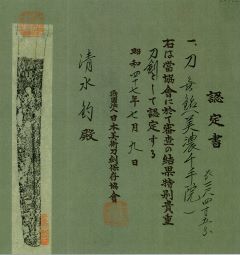 認定書
一、刀 無銘(美濃千手院)
右は當協會に於て審査の結果特別貴重
刀劍として認定する
昭和四十七年七月九日
財團法人日本美術刀劍保存協會
清水 殿